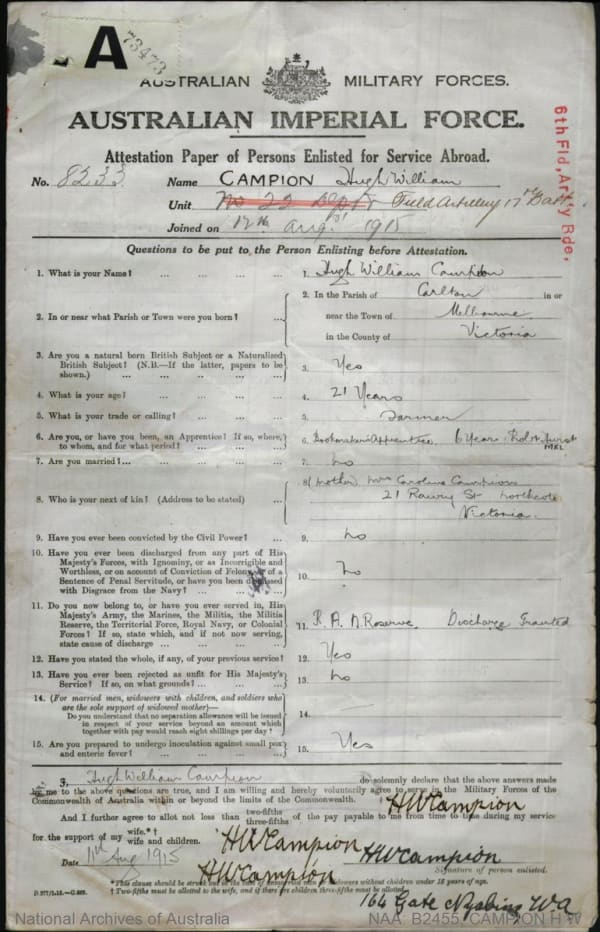 A
73473
AUSTRALIAN MILITARY FORCES.
AUSTRALIAN IMPERIAL FORCE.
Attestation Paper of Persons Enlisted for Service Abroad.
No. 8233 Name CAMPION Hugh William
Unit No 22 Dept Field Artillery 17th Batt.
Joined on 17th Aug 1915
6th Fld, Art'y Bde,
Questions to be put to the Person Enlisting before Attestation.
1. What is your Name? ... ... ... ... 1. Hugh William Campion
2. In or near what Parish or Town were you born? ... 2. In the Parish of Carlton in or
near the Town of Melbourne
in the County of Victoria
3. Are you a natural born British Subject or a Naturalized
British Subject? (N.B.—If the latter, papers to be
shown.) ... ... ... ... 3. Yes
4. What is your age? ... ... ... ... 4. 21 Years
5. What is your trade or calling? ... ... ... 5. Farmer
6. Are you, or have you been, an Apprentice? If so, where,
to whom, and for what period? ... ... 6. Bootmaker's Apprentice. 6 Years
7. Are you married? ... ... ... ... 7. No
8. Who is your next of kin? (Address to be stated) ... 8. (Mother) Mrs Caroline Campion
21 St Northcote
Victoria.
9. Have you ever been convicted by the Civil Power? ... 9. No
10. Have you ever been discharged from any part of His
Majesty's Forces, with Ignominy, or as Incorrigible and
Worthless, or on account of Conviction of Felony, or of a
Sentence of Penal Servitude, or have you been dismissed
with Disgrace from the Navy? ... 10. No
11. Do you now belong to, or have you ever served in, His
Majesty's Army, the Marines, the Militia, the Militia
Reserve, the Territorial Force, Royal Navy, or Colonial
Forces? If so, state which, and if not now serving,
state cause of discharge ... ... ... 11. R. A. N. Reserve. Discharge Granted
12. Have you stated the whole, if any, of your previous service? 12. Yes
13. Have you ever been rejected as unfit for His Majesty's
Service? If so, on what grounds? ... ... 13. No
14. (For married men, widowers with children, and soldiers who
are the sole support of widowed mother)—
Do you understand that no separation allowance will be issued
in respect of your service beyond an amount which
together with pay would reach eight shillings per day? 14.
15. Are you prepared to undergo inoculation against small pox
and enteric fever? ... ... ... ... 15. Yes
I, Hugh William Campion do solemnly declare that the above answers made
by me to the above questions are true, and I am willing and hereby voluntarily agree to serve in the Military Forces of the
Commonwealth of Australia within or beyond the limits of the Commonwealth.
HWCampion
And I further agree to allot not less than two-fifths three-fifths of the pay payable to me from time to time during my service
for the support of my wife.*† wife and children.
HWCampion
Date 11th Aug 1915 HWCampion
Signature of person enlisted.
HWCampion
* This clause should be struck out in the case of unmarried men or widowers without children under 18 years of age.
† Two-fifths must be allotted to the wife, and if there are children three-fifths must be allotted.
164 Gate Nyabing WA
National Archives of Australia NAA: B2455, CAMPION H W